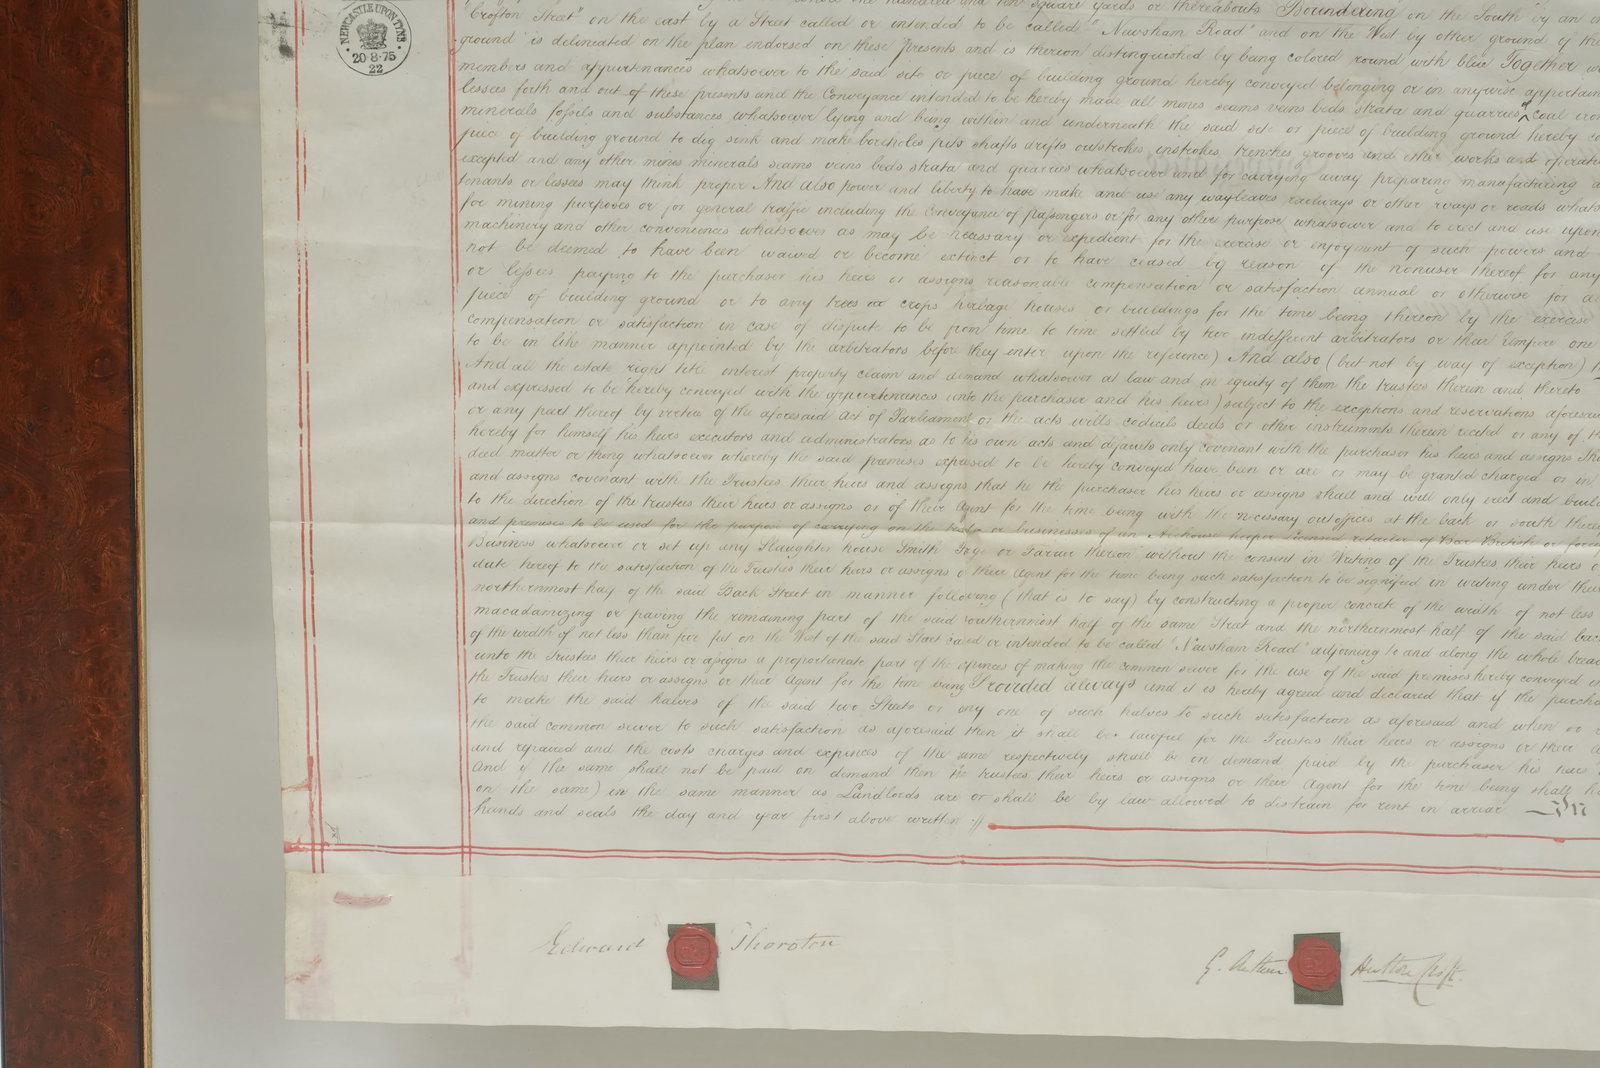 NEWCASTLE UPON TYNE
20·8·75
22
square yards or thereabouts Boundering on the South by an
"Crofton Street" on the east by a Street called or intended to be called "Newsham Road" and on the West by other ground of the
ground is delineated on the plan endorsed on these presents and is thereon distinguished by being colored round with blue Together
members and appurtenances whatsoever to the said site or piece of building ground hereby conveyed belonging or in anywise appertain
lessees forth and out of these presents and the Conveyance intended to be hereby made all mines seams veins beds strata and quarries of coal iron
minerals fossils and substances whatsoever lying and being within and underneath the said site or piece of building ground hereby
piece of building ground to dig sink and make boreholes pits shafts drifts outstrokes instrokes trenches grooves and other works and operati
excepted and any other mines minerals seams veins beds strata and quarries whatsoever and for carrying away preparing manufacturing
tenants or lessees may think proper And also power and liberty to have make and use any wayleaves railways or other ways or roads whats
for mining purposes or for general traffic including the Conveyance of passengers or for any other purpose whatsoever and to erect and use upon
machinery and other conveniences whatsoever as may be necessary or expedient for the exercise or enjoyment of such powers and
not be deemed to have been waived or become extinct or to have ceased by reason of the nonuser thereof for any
or lessees paying to the purchaser his heirs or assigns reasonable compensation or satisfaction annual or otherwise for
piece of building ground or to any trees or crops herbage houses or buildings for the time being thereon by the exercise
compensation or satisfaction in case of dispute to be from time to time settled by two indifferent arbitrators or their Umpire one
to be in like manner appointed by the arbitrators before they enter upon the reference) And also (but not by way of exception)
And all the estate right title interest property claim and demand whatsoever at law and in equity of them the trustees therein and thereto
and expressed to be hereby conveyed with the appurtenances unto the purchaser and his heirs) subject to the exceptions and reservations aforesai
or any part thereof by virtue of the aforesaid Act of Parliament or the acts wills codicils deeds or other instruments therein recited or any of
hereby for himself his heirs executors and administrators as to his own acts and defaults only covenant with the purchaser his heirs and assigns
deed matter or thing whatsoever whereby the said premises expressed to be hereby conveyed have been or are or may be granted charged or in
and assigns covenant with the Trustees their heirs and assigns that he the purchaser his heirs or assigns shall and will only erect and build
to the direction of the trustees their heirs or assigns or of their Agent for the time being with the necessary outoffices at the back or south
and premises to be used for the purpose of carrying on the trades or businesses of an Alehouse keeper licensed retailer of Beer British or
Business whatsoever or set up any Slaughter house Smith Forge or Farrier thereon without the consent in Writing of the Trustees their heirs
date hereof to the satisfaction of the Trustees their heirs or assigns or their Agent for the time being such satisfaction to be signified in writing under their
northernmost half of the said Back Street in manner following (that is to say) by constructing a proper concrete of the width of not less
macadamizing or paving the remaining part of the said southernmost half of the same Street and the northernmost half of the said back
of the width of not less than five feet on the West of the said Street called or intended to be called 'Newsham Road' adjoining to and along the whole
unto the Trustees their heirs or assigns a proportionate part of the expences of making the common sewer for the use of the said premises hereby conveyed
the Trustees their heirs or assigns or their Agent for the time being Provided always and it is hereby agreed and declared that if the purcha
to make the said halves of the said two Streets or any one of such halves to such satisfaction as aforesaid and when
the said common sewer to such satisfaction as aforesaid then it shall be lawful for the Trustees their heirs or assigns or their
and repaired and the costs charges and expences of the same respectively shall be on demand paid by the purchaser his heirs
And if the same shall not be paid on demand then the trustees their heirs or assigns or their Agent for the time being shall
on the same) in the same manner as Landlords are or shall be by law allowed to distrain for rent in arrear
hands and seals the day and year first above written
Edward Thornton
G. Arthur Hutton Croft.